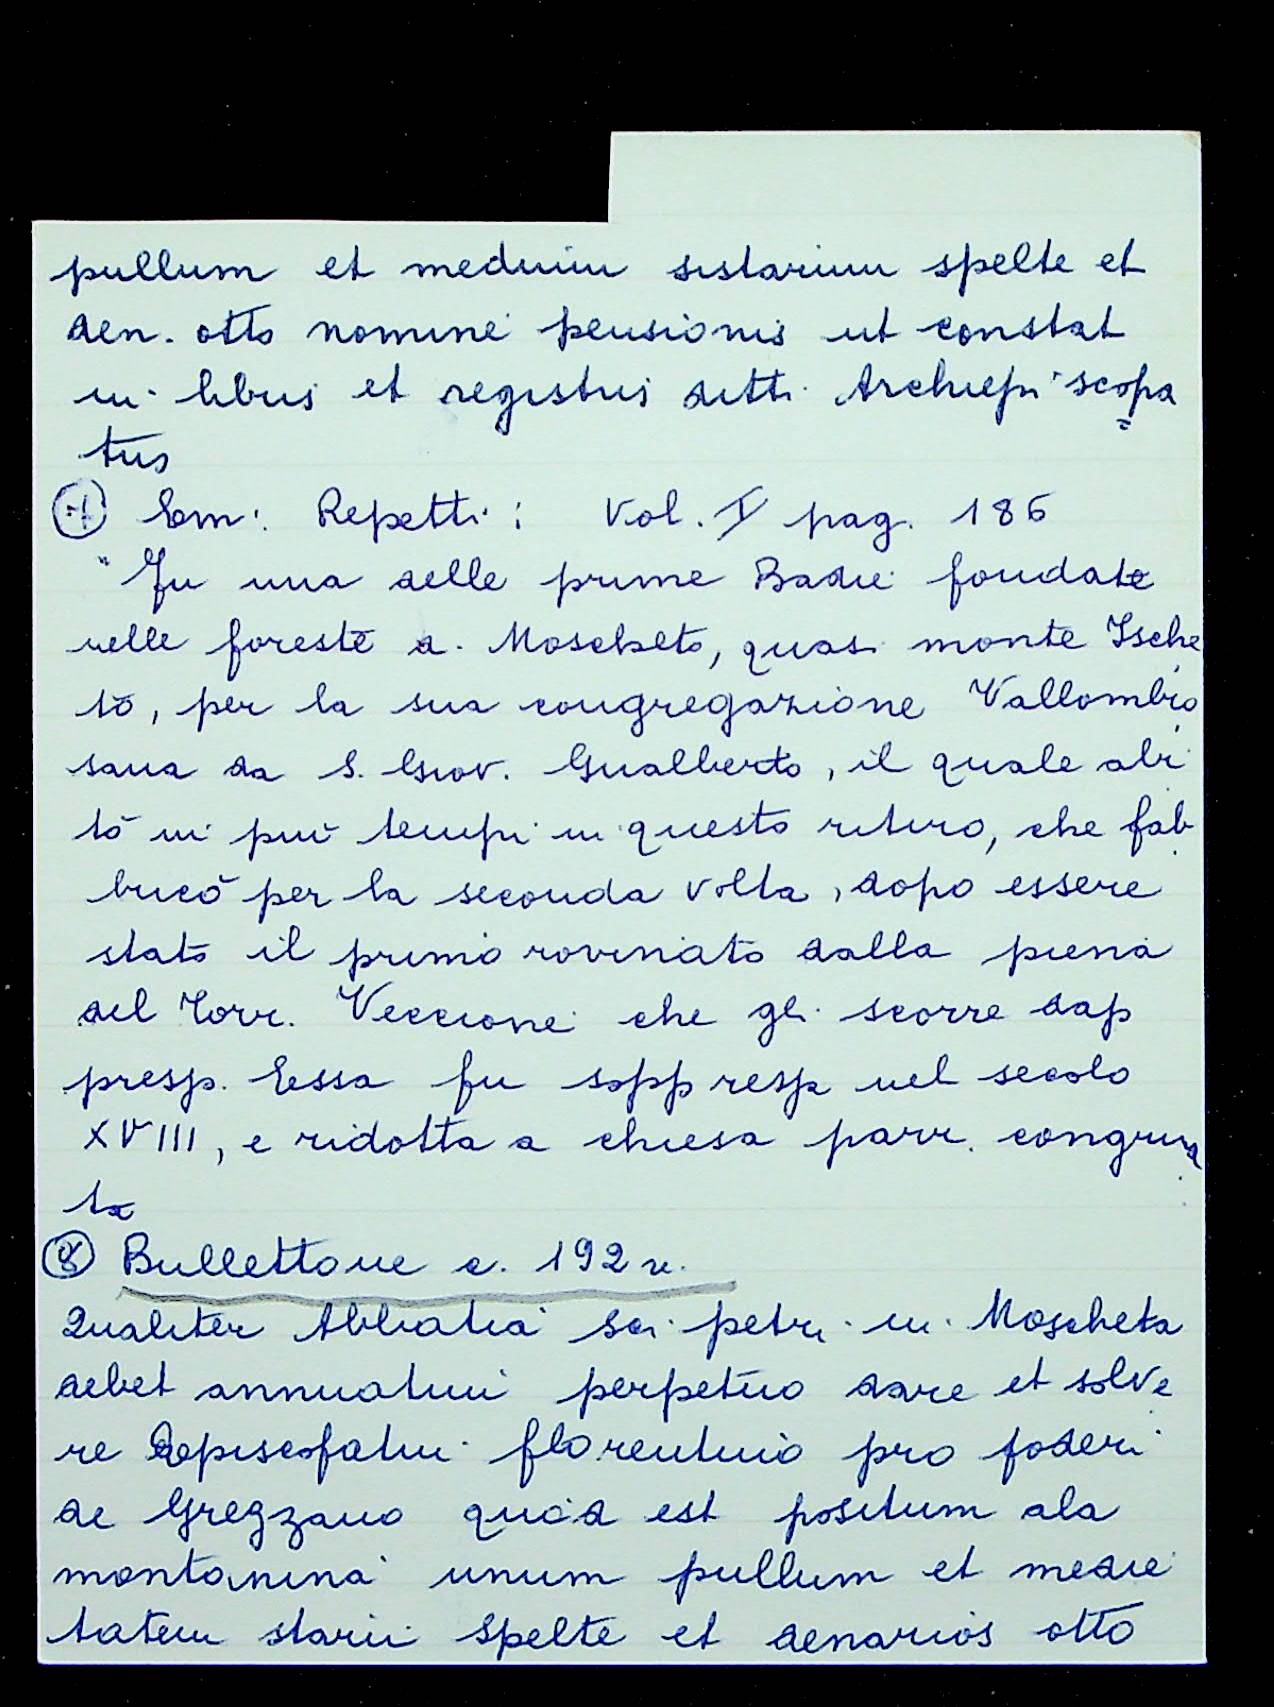 pullum et medium sistarium spelte et
den. otto nomine pensionis ut constat
in libris et registris ditti Archiepi scopa
tus
Em: Repetti: Vol. I pag. 186
"Fu una delle prime Badie fondate
nelle foreste a Moscheto, quasi monte Ische
to, per la sua congregazione Vallombro
sana da S. Giov. Gualberto, il quale abi
tò in più tempi in questo ritiro, che fab
bricò per la seconda volta, dopo essere
stato il primo rovinato dalla piena
del Torr. Veccione che gli scorre dap
presso. Essa fu soppressa nel secolo
XVIII, e ridotta a chiesa parr. congrua
ta
⑧ Bullettone c. 192 v.
Qualiter Abbatia sci petri in Moscheta
debet annuatim perpetuo dare et solve
re Episcopatui florentino pro poderi
de Gregzano quod est positum ala
montanina unum pullum et medie
tatem starii spelte et denarios otto